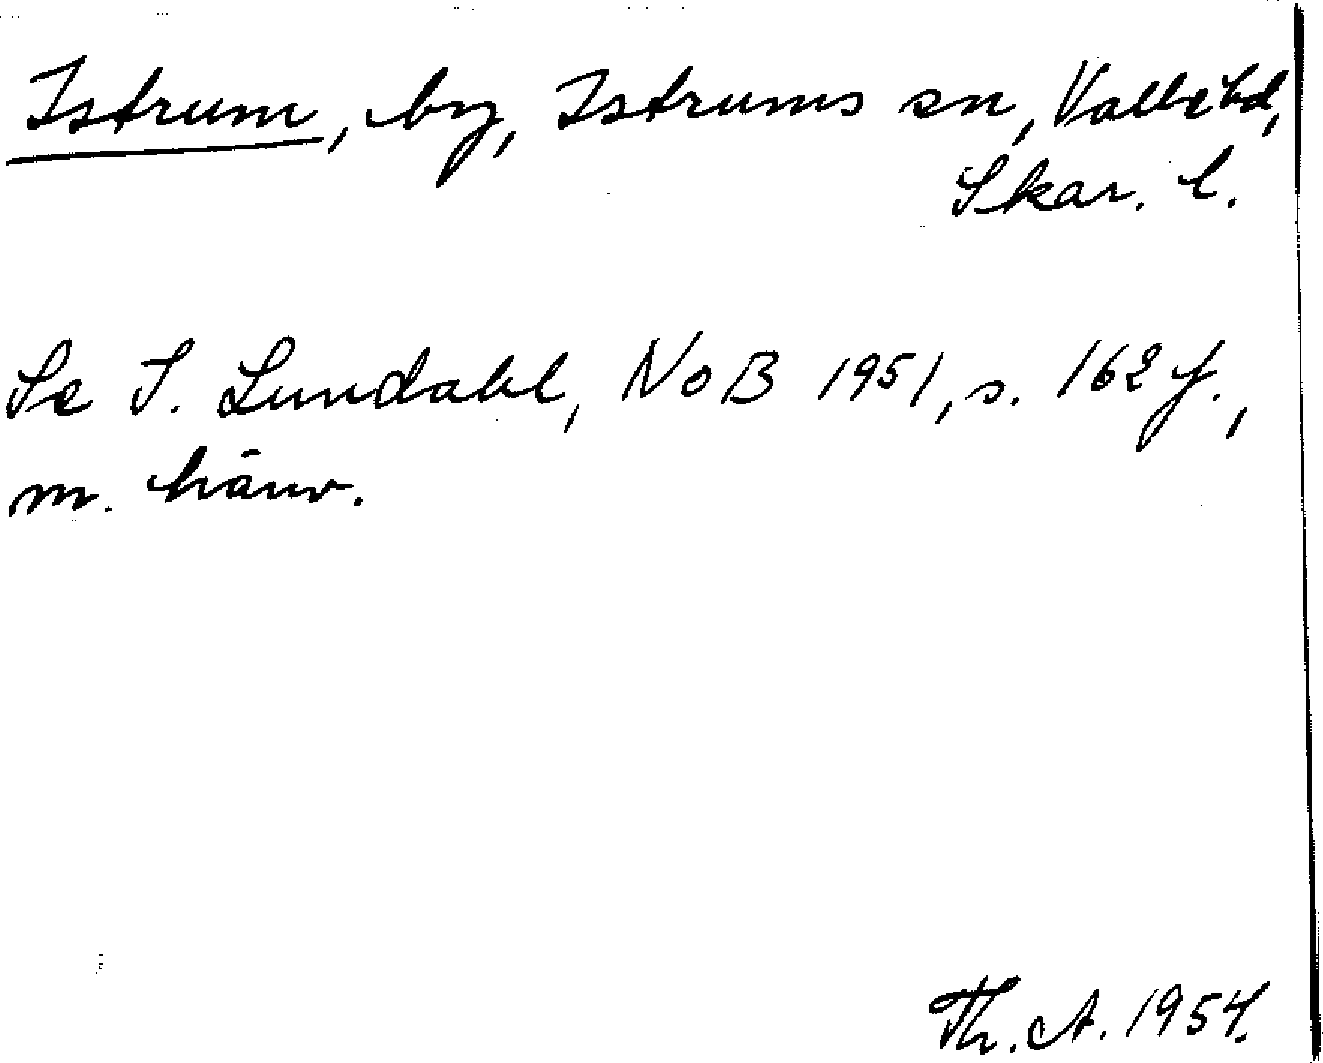 Istrum, by, Istrums sn, Valle hd,
Skar. l.
Se I. Lundahl, NoB 1951, s. 162 f.,
m. hänv.
Th. A. 1954.